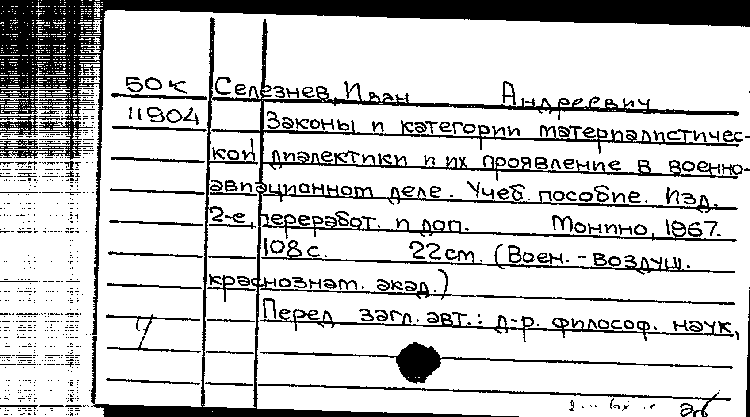 50к Селезнев, Иван Андреевич
11904 Законы и категории материалистичес-
кой диалектики и их проявление в военно-
авиационном деле. Учеб. пособие. Изд.
2-е, переработ. и доп. Монино, 1967.
108 с. 22 см. (Воен.-воздуш.
краснознам. акад.)
Перед загл. авт.: д-р. философ. наук,